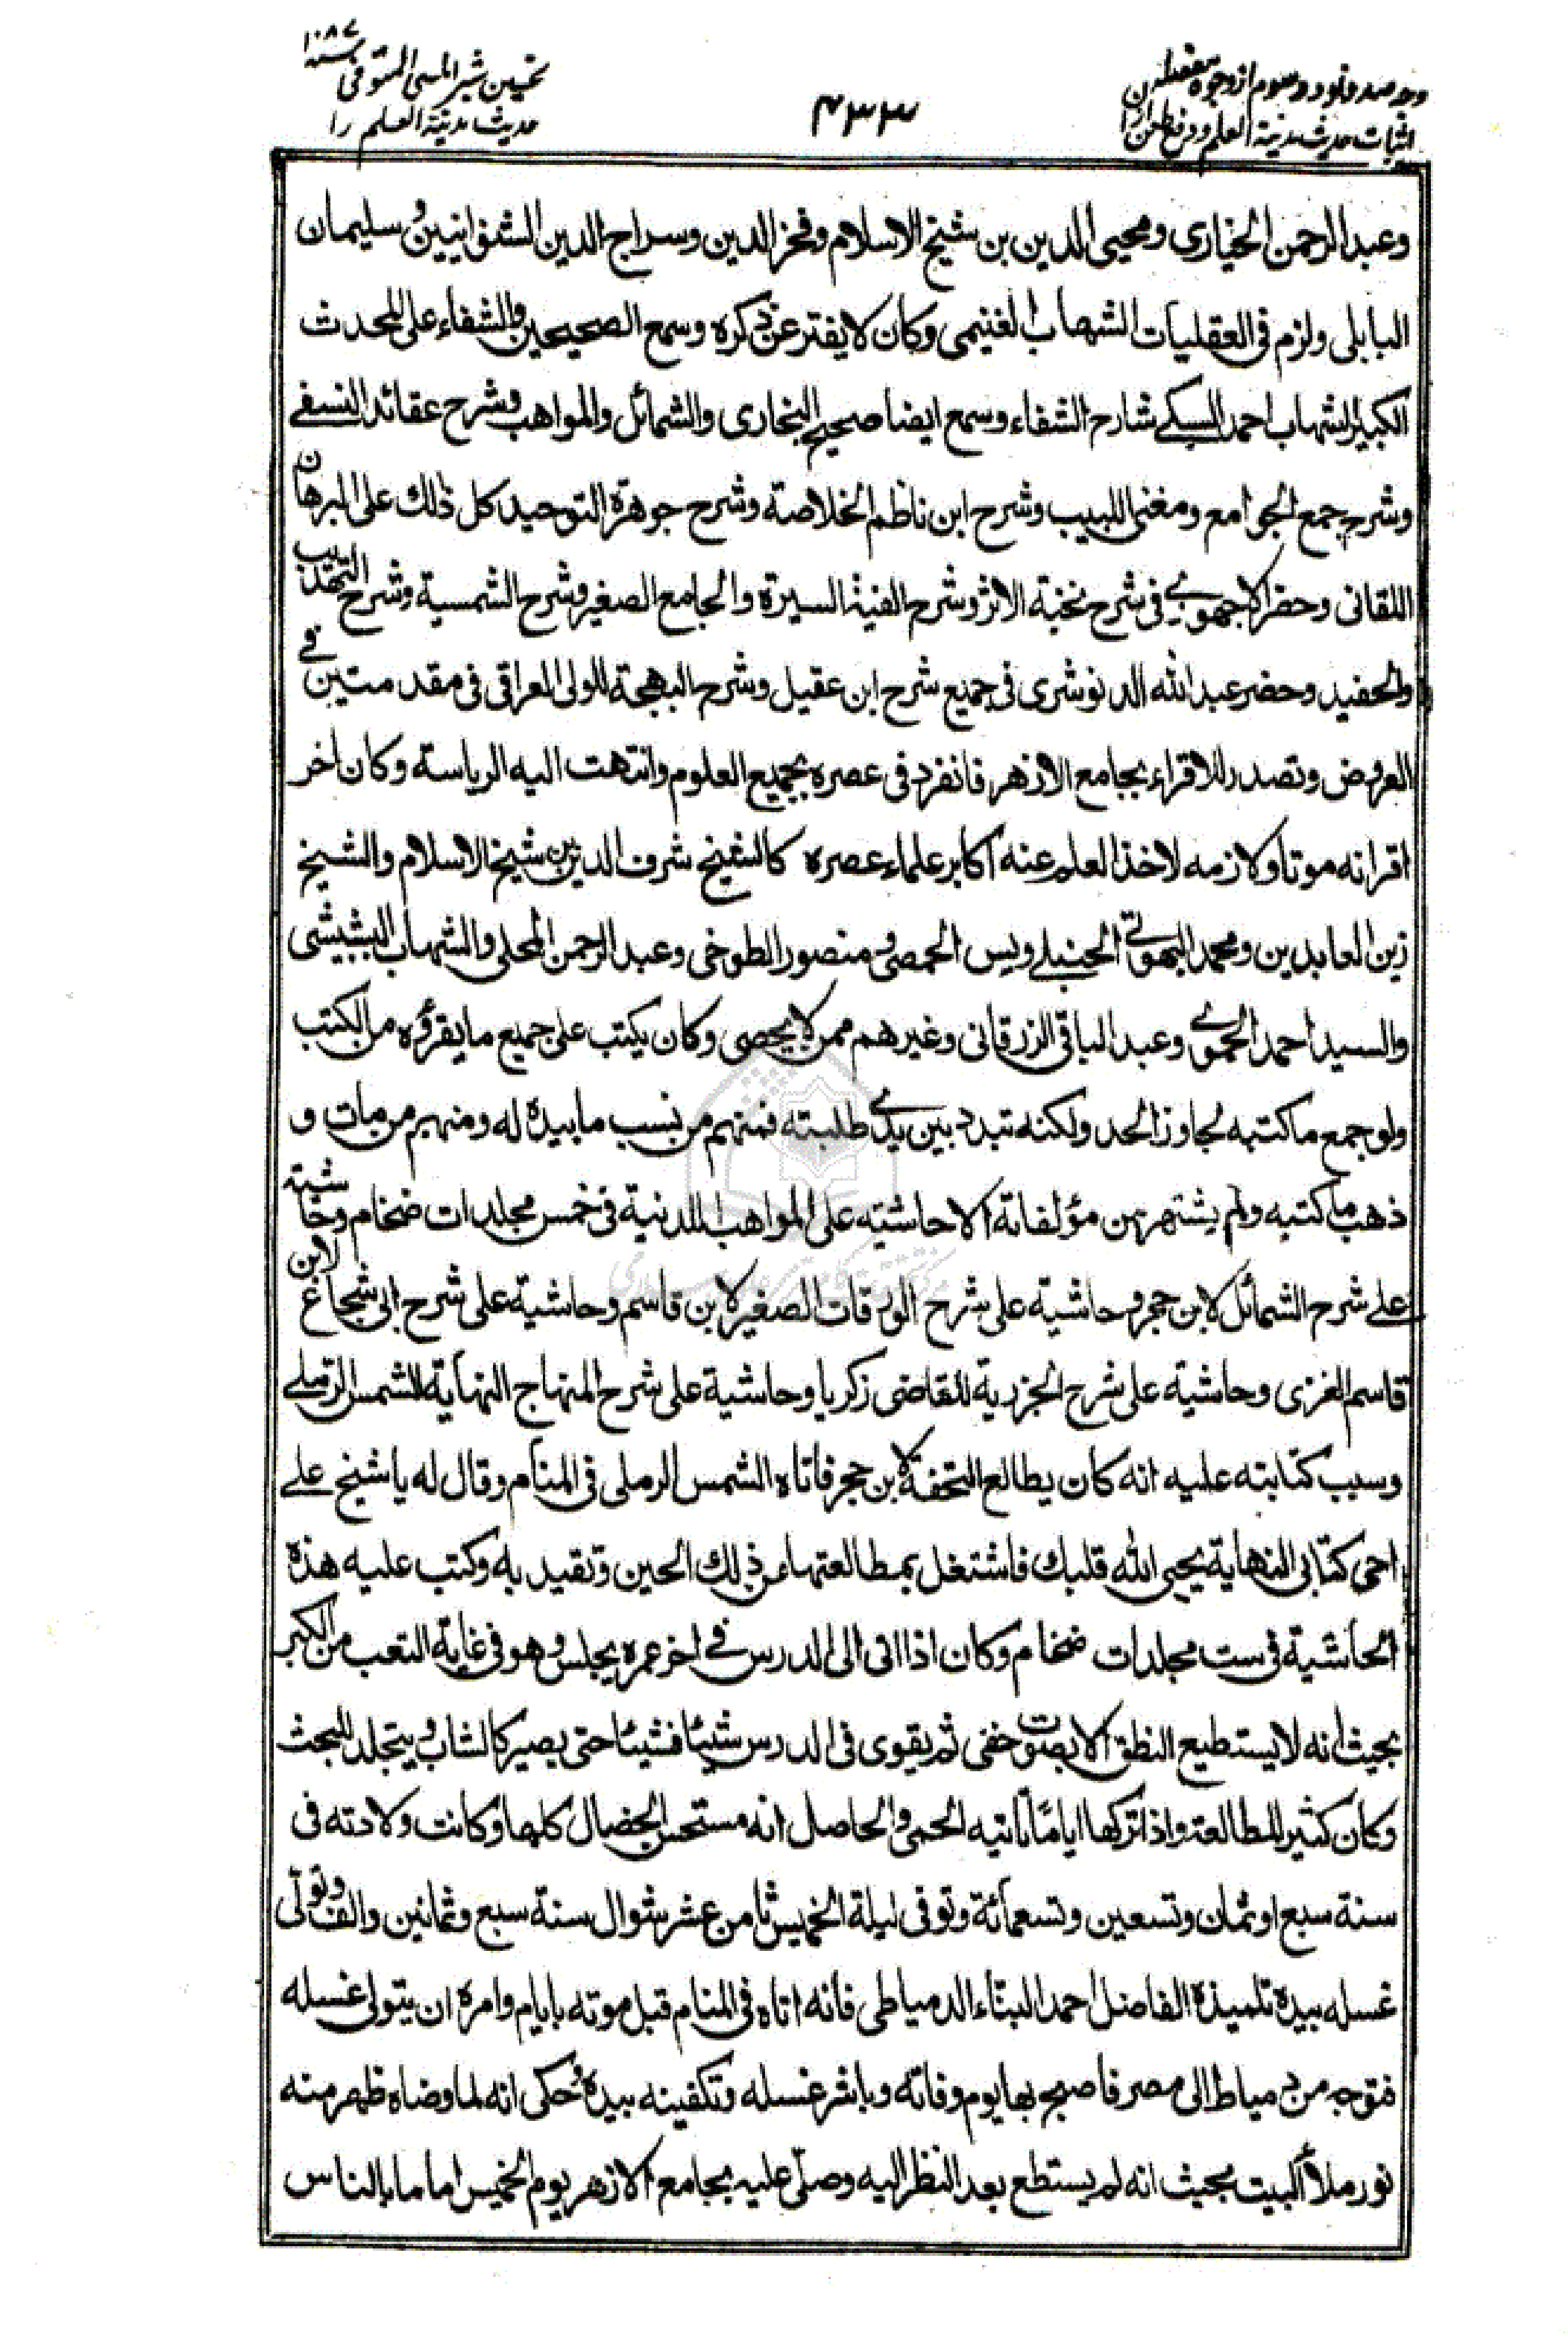 وجه صد و نود و سوم از وجوه مفصله
اثبات حديث مدينة العلم و دفع طعن ازان
۴۳۳
تحسين شبراملسى المتوفى سنه ۱۰۸۷
حديث مدينة العلم را
وعبد الرحمن الخيارى ومحيى الدين بن شيخ الاسلام وفخر الدين وسراج الدين الشنوانيين وسليمان
البابلى ولزم فى العقليات الشهاب الغنيمى وكان لا يفتر عن ذكره وسمع الصحيحين والشفاء على المحدث
الكبير الشهاب احمد السبكے شارح الشفاء وسمع ايضا صحيح البخارى والشمائل والمواهب وشرح عقائد النسفے
وشرح جمع الجوامع ومغنى اللبيب وشرح ابن ناظم الخلاصة وشرح جوهرة التوحيد كل ذلك على البرهان
اللقانى وحضر الاجهورے فى شرح نخبة الاثر وشرح الفية السيرة والجامع الصغير وشرح الشمسية وشرح التهذيب
والحفيد وحضر عبد الله الدنوشرى فى جميع شرح ابن عقيل وشرح البهجة للولى العراقى فى مقدمتين فے
العروض وتصدر للاقراء بجامع الازهر فانفرد فى عصره بجميع العلوم وانتهت اليه الرياسة وكان اخر
اقرانه موتا ولازمه لاخذ العلم عنه اكابر علماء عصره كالشيخ شرف الدين بن شيخ الاسلام والشيخ
زين العابدين ومحمد البهوتے الحنبلے ويس الحمصى ومنصور الطوخى وعبد الرحمن المحلى والشهاب البشبيشى
والسيد احمد الحموے وعبد الباقى الزرقانى وغيرهم ممن لا يحصى وكان يكتب على جميع ما يقرؤه من الكتب
ولو جمع ما كتبه لجاوز الحد ولكنه تبدد بين يدے طلبته فمنهم من نسب ما بيده له ومنهم من مات و
ذهب ما كتبه ولم يشتهر من مؤلفاته الا حاشيته على المواهب اللدنية فى خمس مجلدات ضخام وحاشية
علے شرح الشمائل لابن حجر وحاشية على شرح الورقات الصغير لابن قاسم وحاشية على شرح ابى شجاع لابن
قاسم الغزى وحاشية على شرح الجزرية للقاضى زكريا وحاشية على شرح المنهاج النهاية للشمس الرملے
وسبب كتابته عليه انه كان يطالع التحفة لابن حجر فاتاه الشمس الرملى فى المنام وقال له يا شيخ علے
احى كتابى النهاية يحيى الله قلبك فاشتغل بمطالعتها من ذلك الحين وتقيد به وكتب عليه هذه
الحاشية فى ست مجلدات ضخام وكان اذا اتى الى الدرس فے اخر عمره يجلس وهو فى غاية التعب من الكبر
بحيث انه لا يستطيع النطق الا بصوت خفى ثم يقوى فى الدرس شيئا فشيئا حتى يصير كالشاب ويتجلد للبحث
وكان كثير المطالعة واذا تركها اياما تاتيه الحمى والحاصل انه مستحسن الخصال كلها وكانت ولادته فى
سنة سبع او ثمان وتسعين وتسعمائة وتوفى ليلة الخميس ثامن عشر شوال سنة سبع وثمانين والف وتولى
غسله بيده تلميذه الفاضل احمد البناء الدمياطى فانه اتاه فى المنام قبل موته بايام وامره ان يتولى غسله
فتوجه من دمياط الى مصر فاصبح بها يوم وفاته وباشر غسله وتكفينه بيده وحكى انه لما وضاه ظهر منه
نور ملأ البيت بحيث انه لم يستطع بعد النظر اليه وصلى عليه بجامع الازهر يوم الخميس اماما بالناس